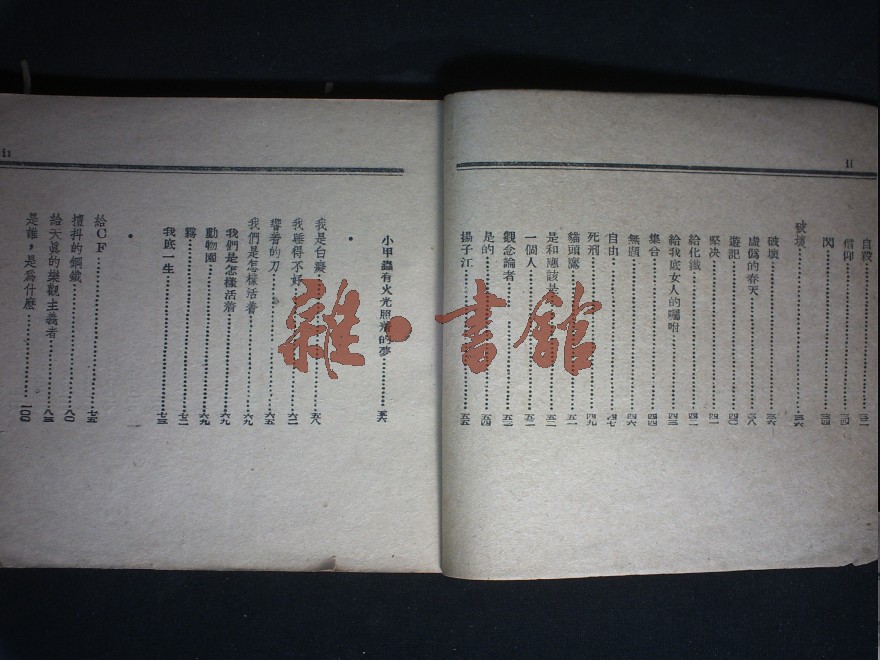 ii
自殺…………三二
信仰…………三四
閃…………三四
破壞…………三六
破壞…………三六
虛僞的春天…………三八
遊記…………四〇
堅决…………四一
給化鐵…………四二
給我底女人的囑咐…………四三
集合…………四四
無題…………四六
自由…………四七
死刑…………四九
貓頭鷹…………五一
是和應該是
一個人…………五二
觀念論者…………五三
是的…………五四
揚子江…………五五
小甲蟲有火光照着的夢…………五六
我是白癡…………五八
我雖得不好
響着的刀…………六五
我們是怎樣活着…………六九
我們是怎樣活着…………六九
動物園…………六九
霧…………七二
我底一生…………七三
給CF…………七五
擅抖的鋼鐵…………八〇
給天眞的樂觀主義者…………八三
是誰，是爲什麽…………一〇〇
雜·書館